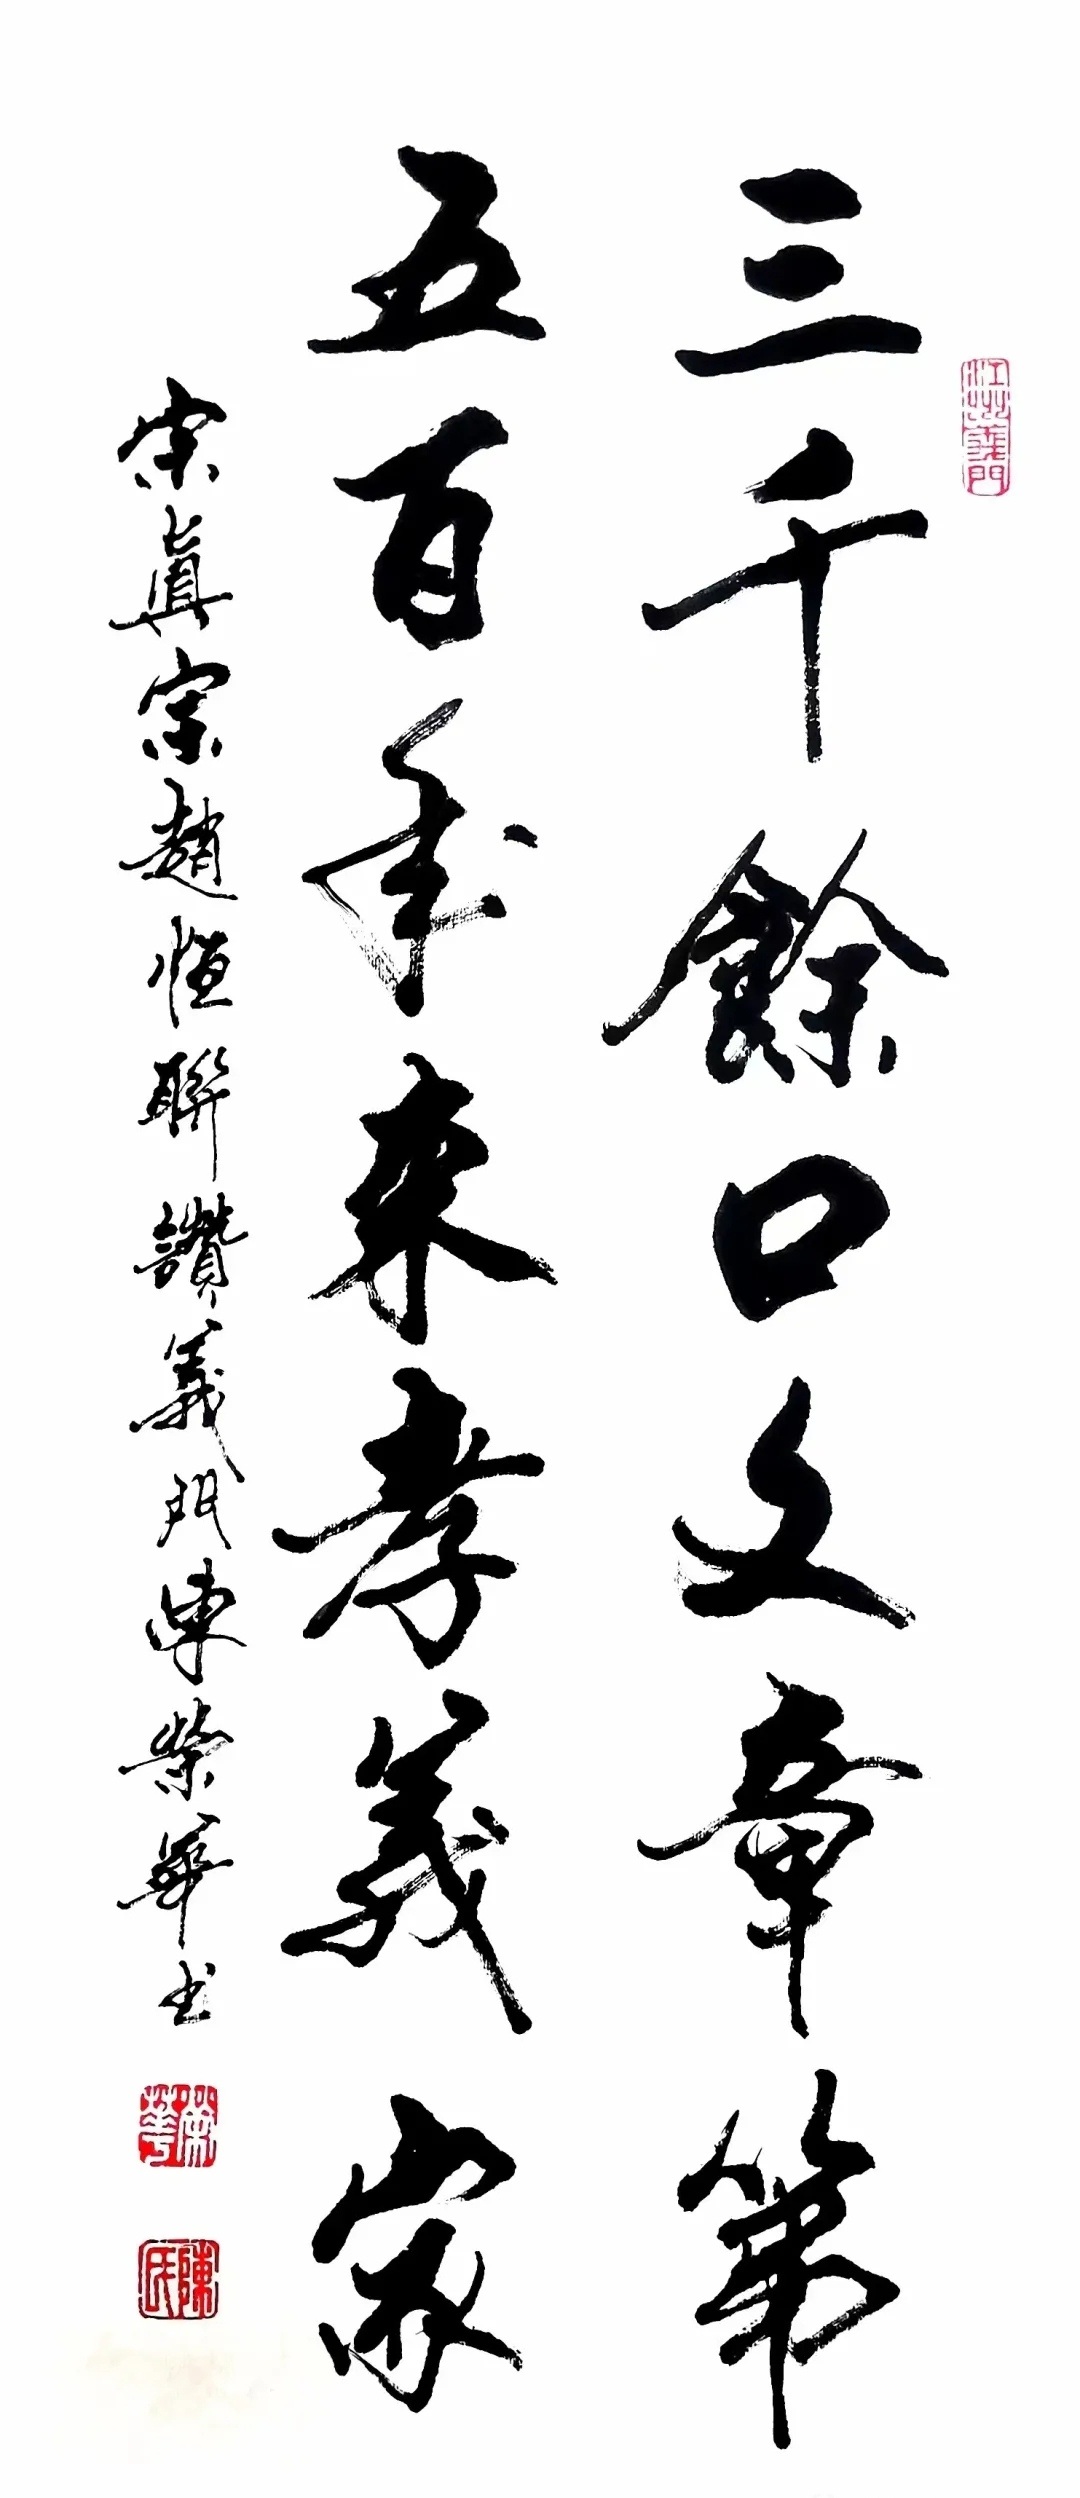 三千餘口文章第
五百年來孝義家
宋真宗趙恒聯讚義門陳榮華書
江州義門
榮華
陳氏